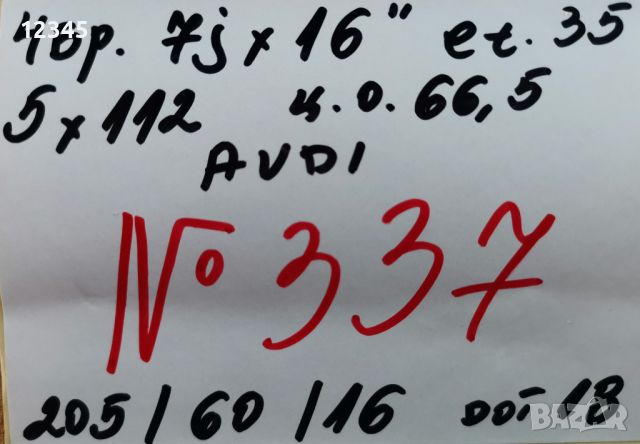 12345
4бр. 7j x 16" et. 35
5 x 112 ц.о. 66,5
AUDI
№ 337
205 / 60 / 16 DOT 18
BAZAR